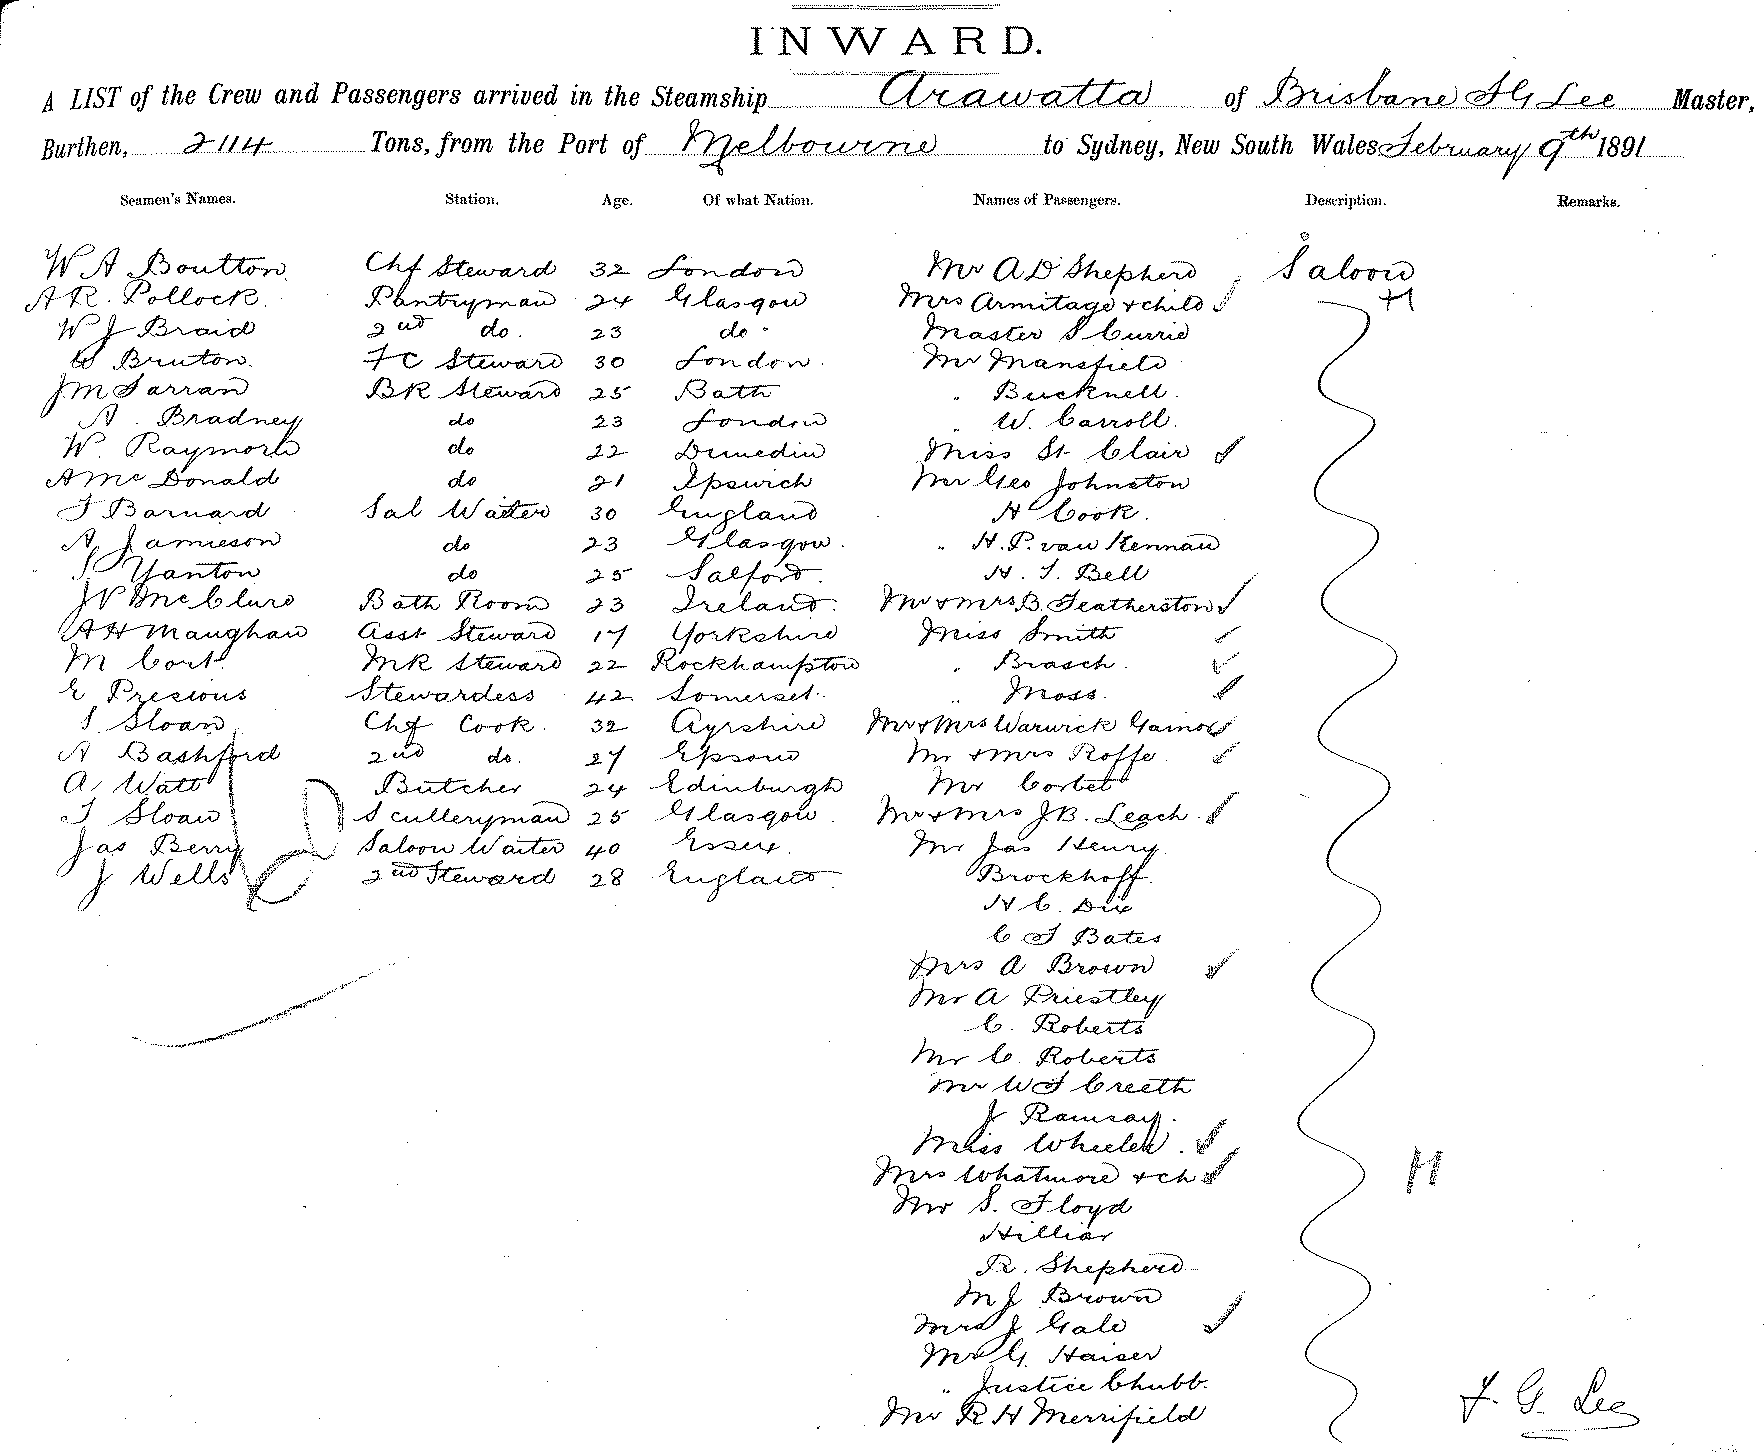 INWARD.
A LIST of the Crew and Passengers arrived in the Steamship Arawatta of Brisbane F G Lee Master,
Burthen, 2114 Tons, from the Port of Melbourne to Sydney, New South Wales February 9th 1891
Seamen's Names. Station. Age. Of what Nation. Names of Passengers. Description. Remarks.
W A Boutton Chf Steward 32 London Mr A D Shepherd Saloon
A R. Pollock Pantryman 24 Glasgow Mrs Armitage + child H
W J Braid 2nd do. 23 do Master S Currie
Bruton FC Steward 30 London Mr Mansfield
J M Farran BK Steward 25 Bath " Bucknell
A Bradney do 23 London " W. Carroll
W. Raymond do 22 Dunedin Miss St Clair
A McDonald do 21 Ipswich Mr Geo Johnston
F Barnard Sal Waiter 30 England H Cook
A Jamieson do 23 Glasgow " H. P. van Kennan
Yanton do 25 Salford H. T. Bell
McClure Bath Room 23 Ireland Mr + Mrs B. Featherston
A H Maughan Asst Steward 17 Yorkshire Miss Smith
M Cort MR Steward 22 Rockhampton " Brasch
E Presious Stewardess 42 Somerset " Moss
S Sloan Chf Cook 32 Ayrshire Mr + Mrs Warwick Gainor
A Bashford 2nd do. 27 Epsom Mr + Mrs Roffe
A Watt Butcher 24 Edinburgh Mr Corbet
T Sloan Sculleryman 25 Glasgow Mr + Mrs J.B. Leach
Jas Berry Saloon Waiter 40 Essex Mr Jas Henry
J Wells 2nd Steward 28 England Brockhoff
H C. Dix
C T Bates
Mrs A Brown
Mr A Priestley
C. Roberts
Mr C Roberts
Mr W T Creeth
J Ramsay
Miss Wheeler
Mrs Whatmore + ch H
Mr S. Floyd
Hilliar
R. Shepherd
M J Brown
Mrs J Gale
Mr G. Haiser
" Justice Chubb.
Mr R H Merrifield
F. G. Lee